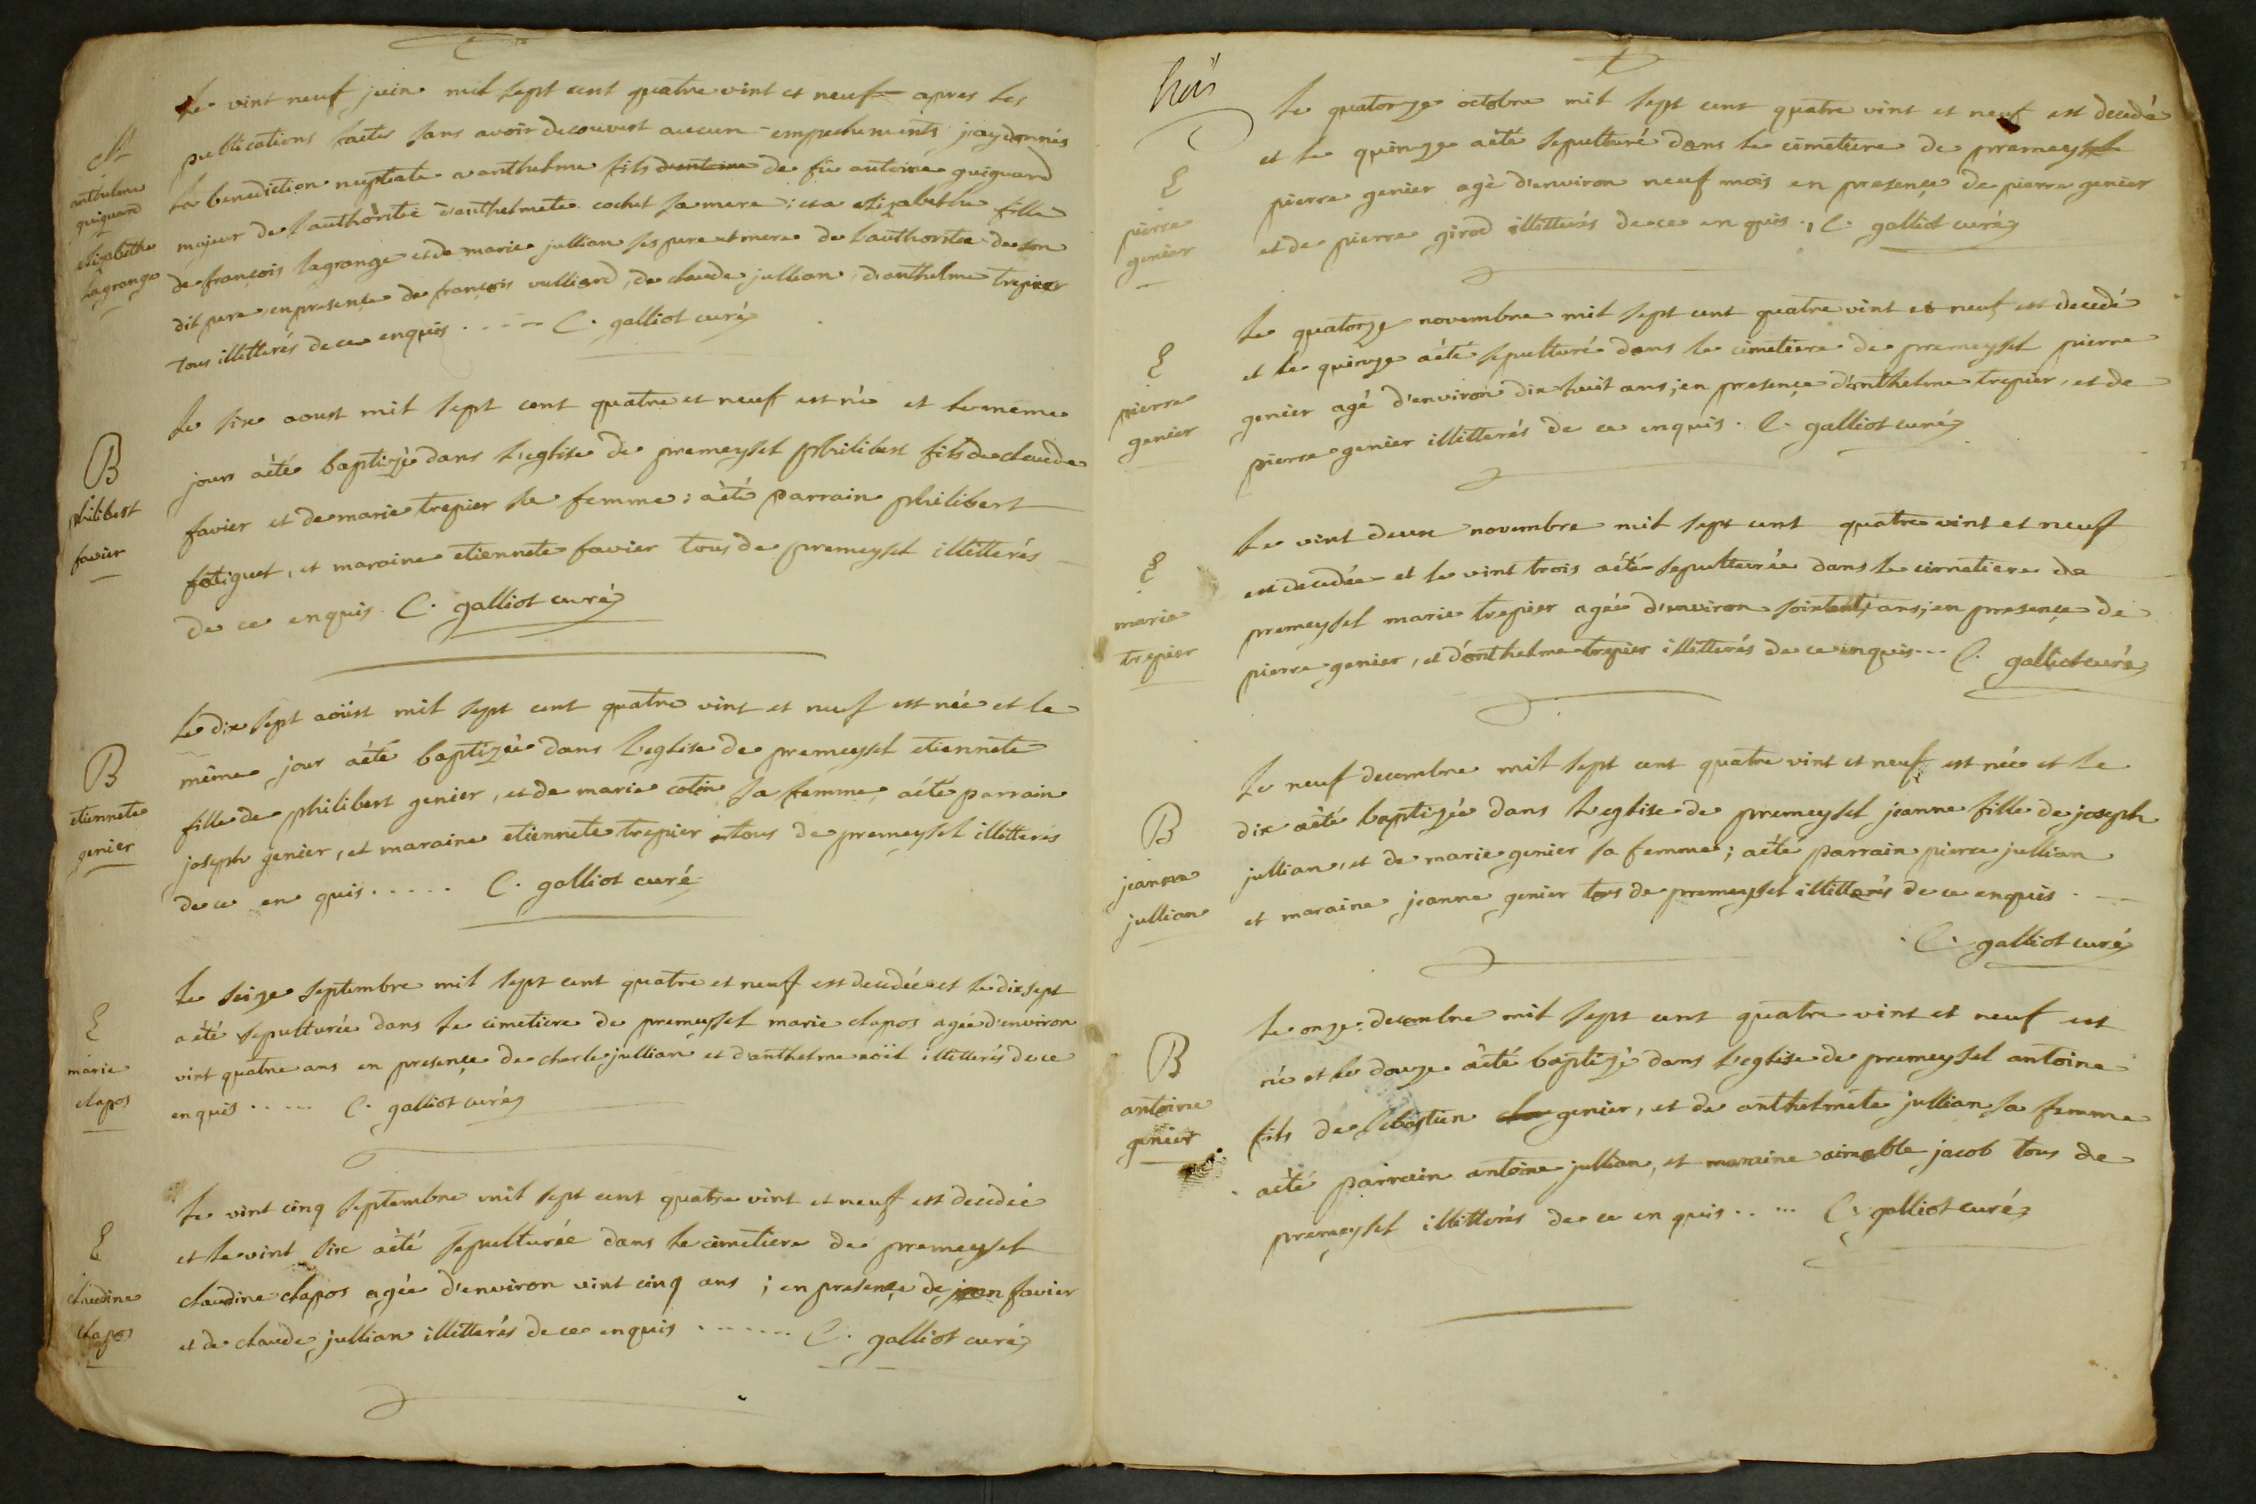 M
anthelme
guiguard
elizabethe
lagrange
Le vint neuf juin mil sept cent quatre vint et neuf apres les
publications faites sans avoir decouvert aucun empechements j'ay donnés
la benediction nuptiale a anthelme fils d'antoine de fû antoine guiguard
majeur de l'authoritée d'anthelmete cochet sa mere : et a elizabethe fille
de françois lagrange et de marie jullian ses pere et mere de l'authoritée de son
dit pere en presençe de françois vulliard, de claude jullian d'anthelme trepier
tous illitterés de ce enquis ..... C. galliot curé
B
philibert
favier
Le six aoust mil sept cent quatre et neuf est né et le même
jour aété baptizé dans l'eglise de premeysel philibert fils de claude
favier et de marie trepier sa femme ; aété parrain philibert
fatiguet, et maraine etiennete favier tous de premeysel illitterés
de ce enquis. C. galliot curé
B
etiennete
genier
Le dix sept aoüst mil sept cent quatre vint et neuf est née et le
même jour aété baptizée dans l'eglise de premeysel etiennete
fille de philibert genier, et de marie cotin sa femme, aété parrain
joseph genier, et maraine etiennete trepier tous de premeysel illitterés
de ce en quis ..... C. galliot curé
E
marie
clapos
Le seize septembre mil sept cent quatre et neuf est decedée et le dix sept
aété sepulturée dans le cimetiere de premeysel marie clapos agée d'environ
vint quatre ans en presençe de charle jullian et d'anthelme illitterés de ce
enquis ..... C. galliot curé
E
claudine
clapos
Le vint cinq septembre mil sept cent quatre vint et neuf est decedée
et le vint six aété sepulturée dans le cimetiere de premeysel
claudine clapos agée d'environ vint cinq ans ; en presençe de jean favier
et de claude jullian illitterés de ce enquis ....... C. galliot curé
E
pierre
genier
Le quatorze octobre mil sept cent quatre vint et neuf est decedé
et le quinze aété sepulturé dans le cimetiere de premeysel
pierre genier agé d'environ neuf mois en presençe de pierre genier
et de pierre girod illitterés de ce en quis. C. galliot curé
E
pierre
genier
Le quatorze novembre mil sept cent quatre vint et neuf est decedé
et le quinze aété sepulturé dans le cimetiere de premeysel pierre
genier agé d'environ dix huit ans ; en presençe d'anthelme trepier, et de
pierre genier illitterés de ce enquis. C. galliot curé
E
marie
trepier
Le vint deux novembre mil sept cent quatre vint et neuf
est decedée et le vint trois aété sepulturée dans le cimetiere de
premeysel marie trepier agée d'environ ans ; en presençe de
pierre genier, et d'anthelme trepier illitterés de ce enquis ... C. galliot curé
B
jeanne
jullian
Le neuf decembre mil sept cent quatre vint et neuf est née et le
dix aété baptizée dans l'eglise de premeysel jeanne fille de joseph
jullian, et de marie genier sa femme ; aété parrain pierre jullian
et maraine jeanne genier tous de premeysel illitterés de ce enquis . —
C. galliot curé
B
antoine
genier
Le onze decembre mil sept cent quatre vint et neuf est
né et le douze aété baptizé dans l'eglise de premeysel antoine
fils de sebastien genier, et de anthelmete jullian sa femme
aété parrain antoine jullian, et maraine aimable jacob tous de
premeysel illitterés de ce en quis ..... C. galliot curé